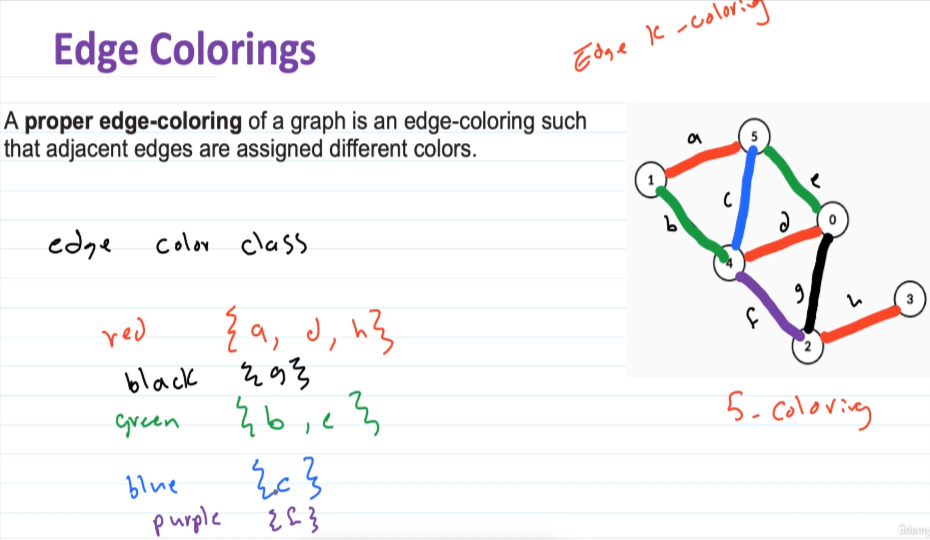 Edge Colorings
Edge k-coloring
A proper edge-coloring of a graph is an edge-coloring such
that adjacent edges are assigned different colors.
edge color class
red {a, d, h}
black {g}
green {b, e}
blue {c}
purple {f}
a
5
1
e
c
b
d
0
4
g
h
3
f
2
5-coloring
ûdemy